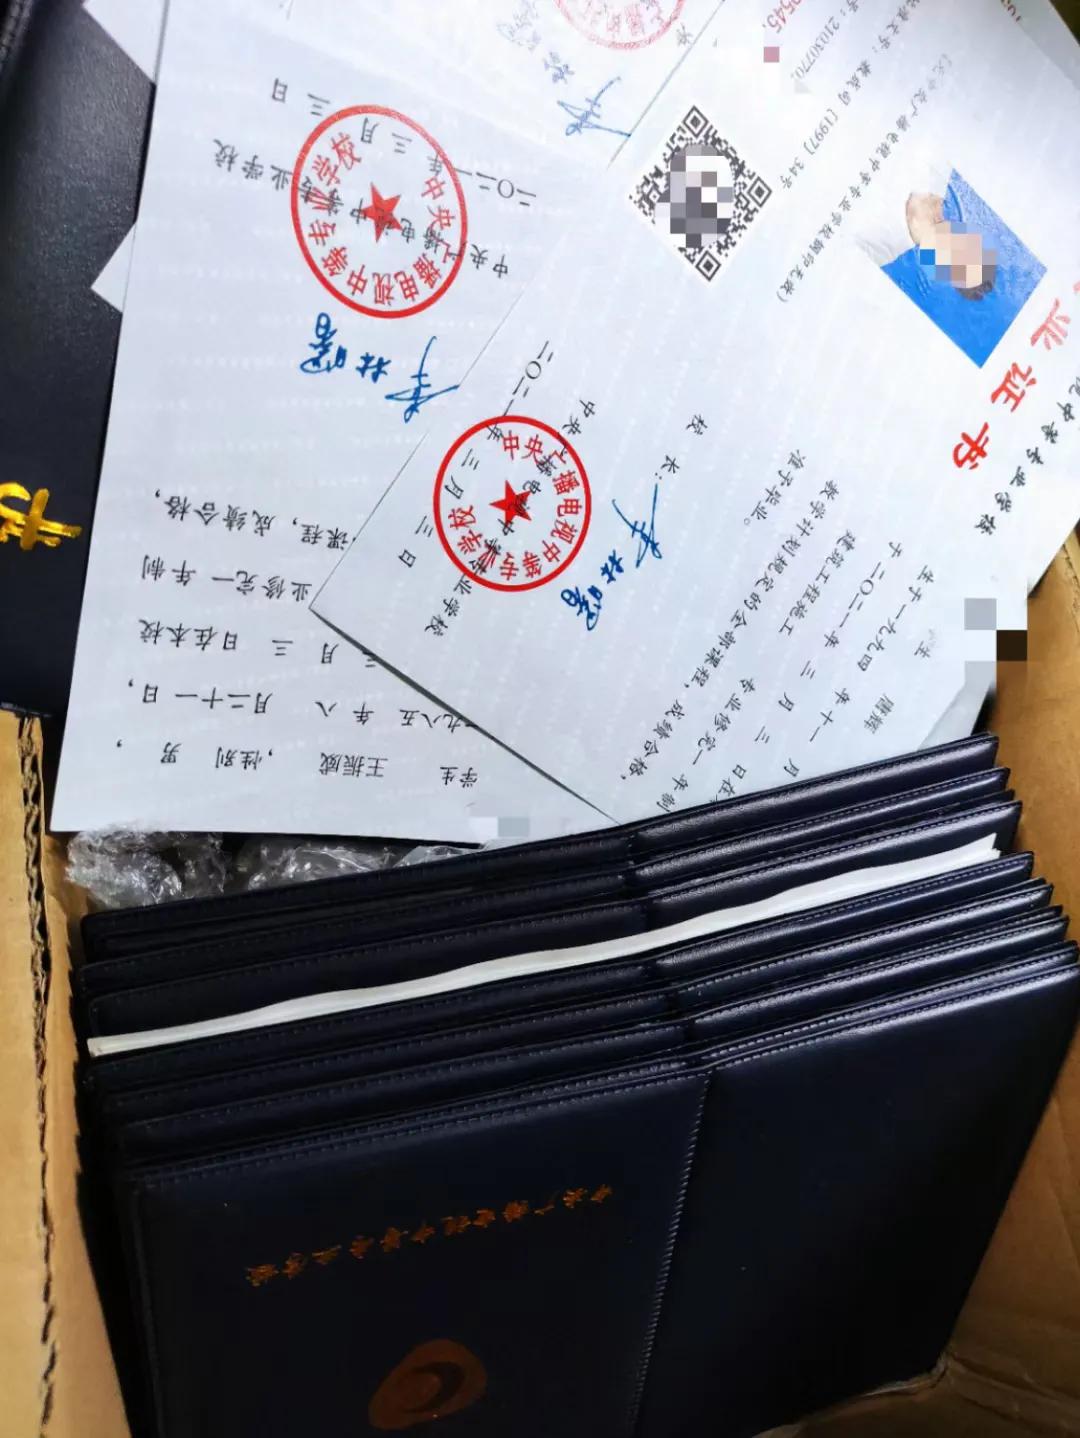 业证书
视中等专业学校
(无中央广播电视中等专业学校钢印无效)
文号：教成司〔1997〕34号
号：21030770
0545
唐辉
生于一九九四年十一月
于二〇二一年三月三日在
建筑工程施工 专业修完一年制
教学计划规定的全部课程，成绩合格，
准予毕业。
校长：
李林曙
中央广播电视中等专业学校
二〇二一年三月三日
中央广播电视中等专业学校
学生 王振威 ，性别 男 ，
一九八五年 八 月二十一日，
三月 三 日在本校
业修完一年制
课程，成绩合格，
李林曙
中央广播电视中等专业学校
二〇二一年三月三日
中央广播电视中等专业学校
书
中央广播电视中等专业学校